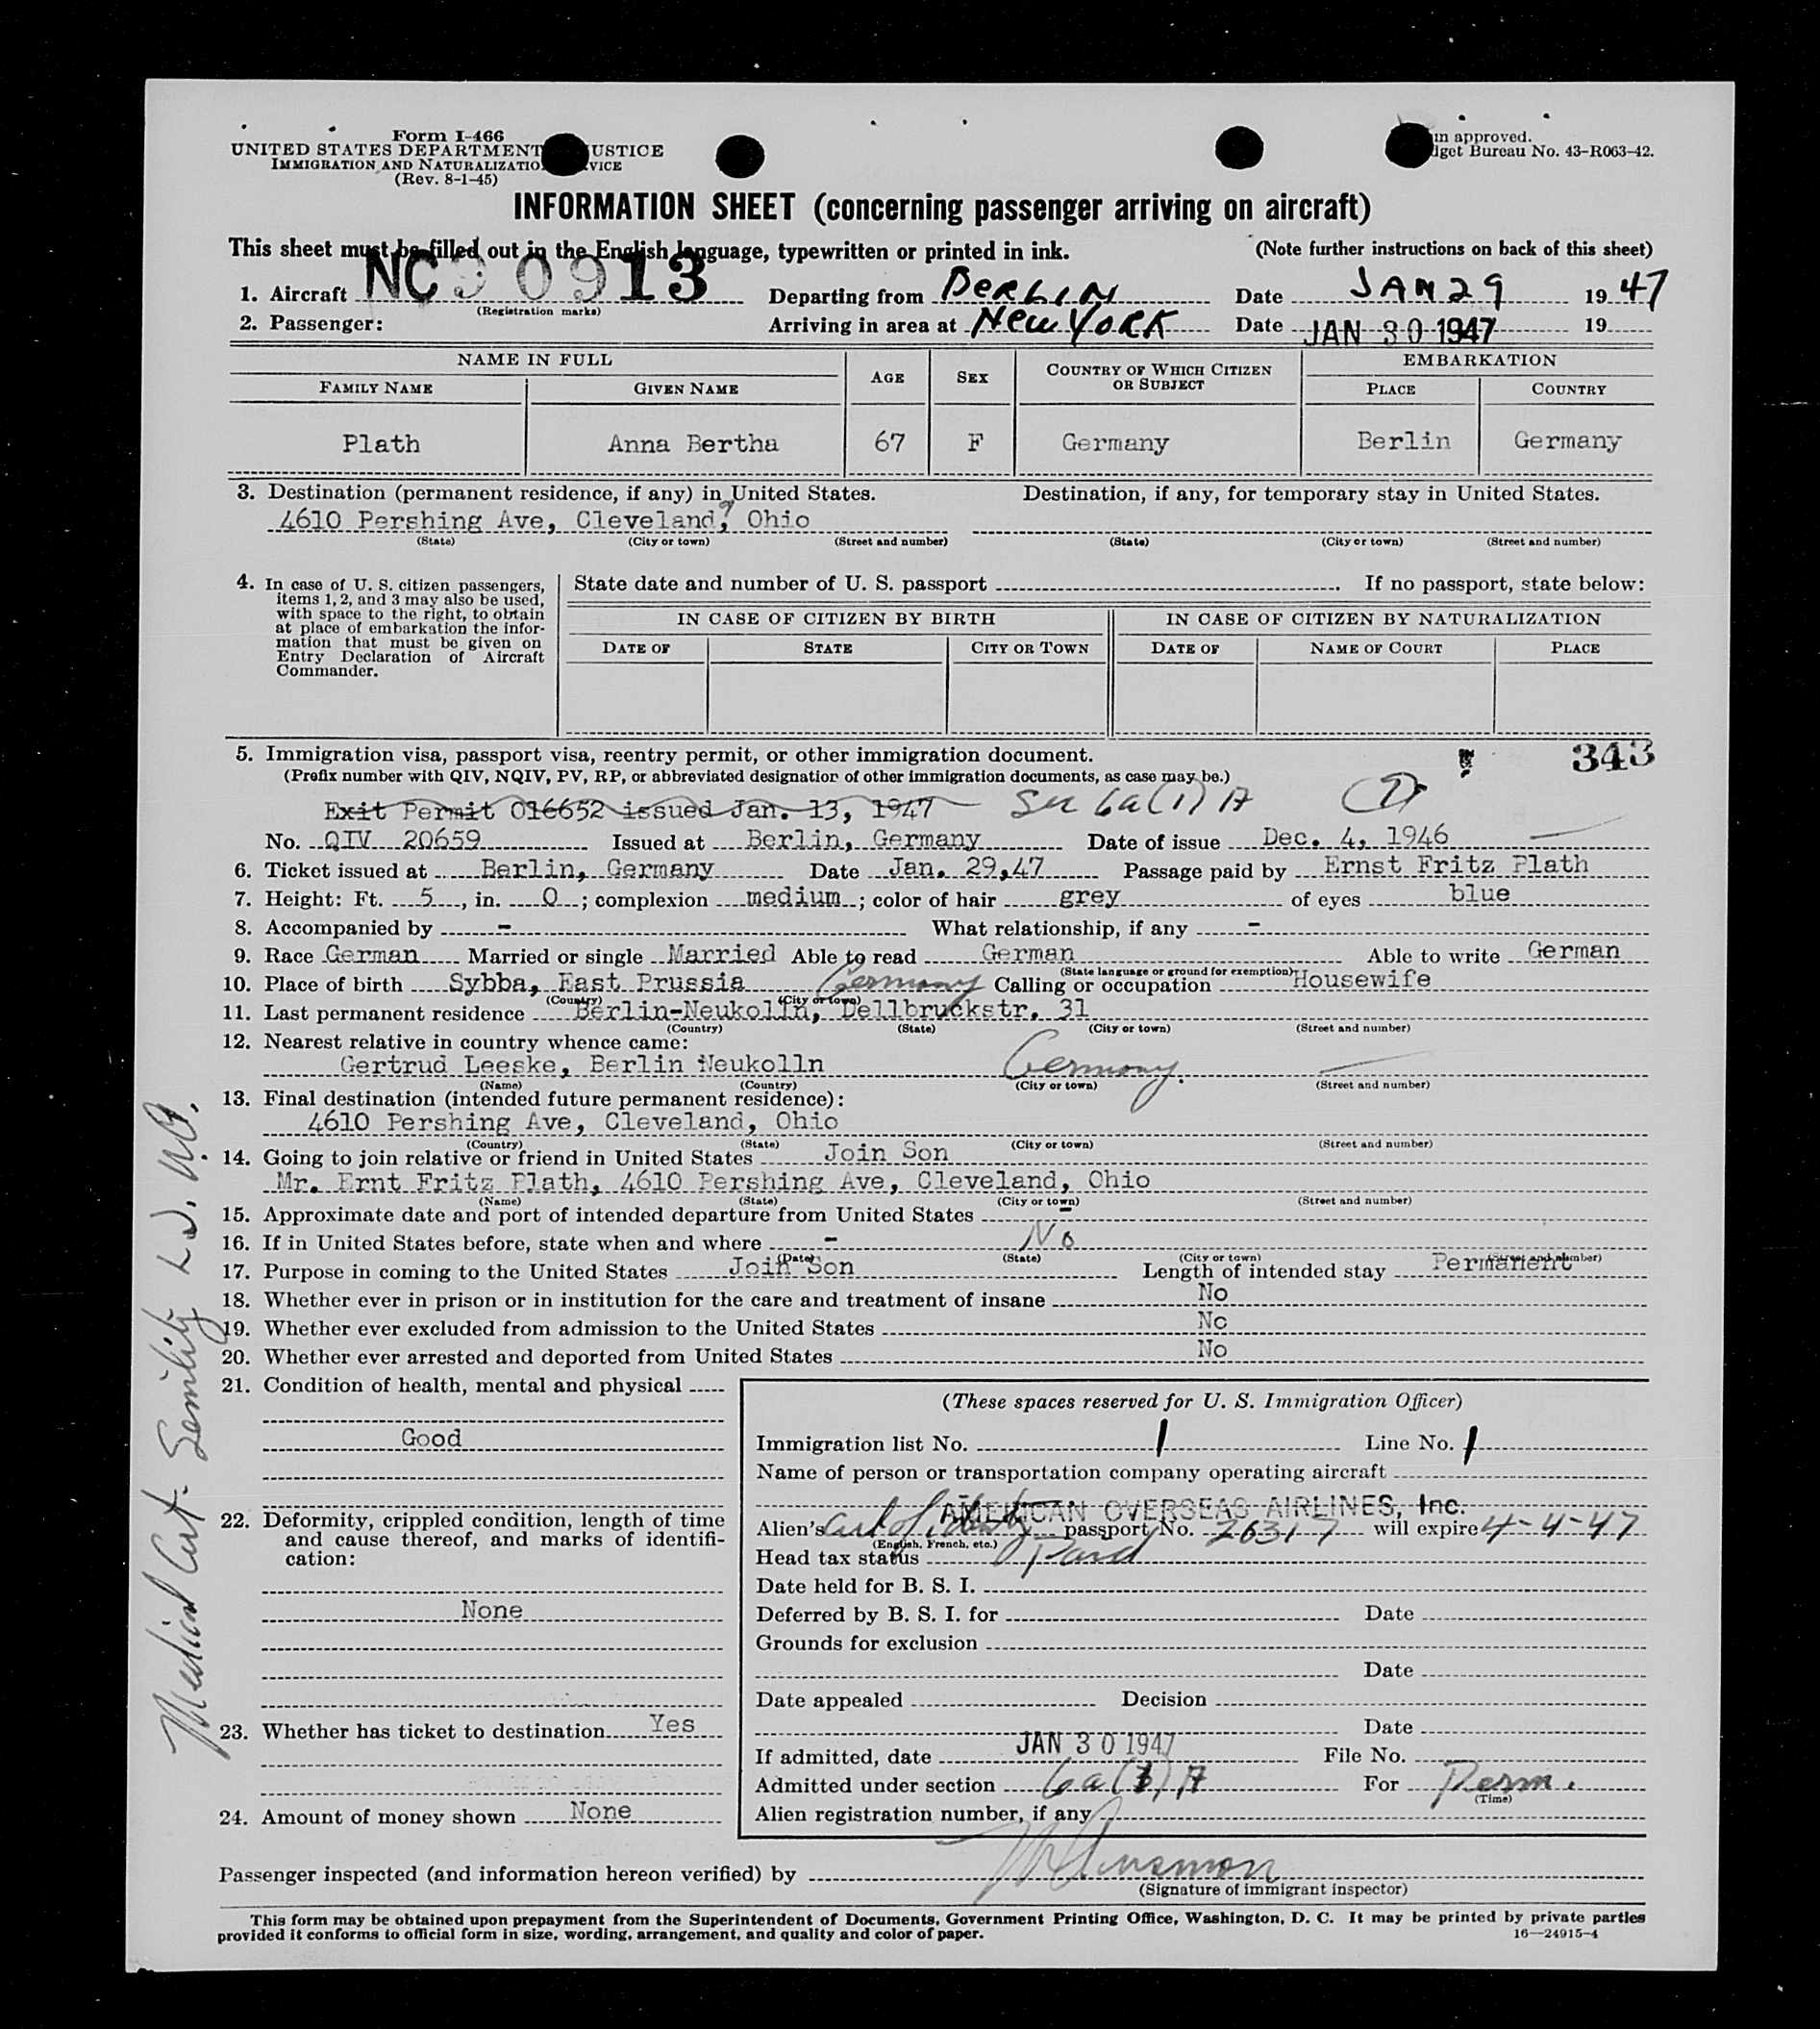 Form I-466
UNITED STATES DEPARTMENT USTICE
IMMIGRATION AND NATURALIZATIO VICE
(Rev. 8-1-45)
m approved.
dget Bureau No. 43-R063-42.
INFORMATION SHEET (concerning passenger arriving on aircraft)
This sheet must be filled out in the English language, typewritten or printed in ink. (Note further instructions on back of this sheet)
1. Aircraft NC90913 Departing from BERLIN Date JAN 29 1947
(Registration marks)
2. Passenger: Arriving in area at NEW YORK Date JAN 30 1947 19
NAME IN FULL AGE SEX COUNTRY OF WHICH CITIZEN OR SUBJECT EMBARKATION
FAMILY NAME GIVEN NAME PLACE COUNTRY
Plath Anna Bertha 67 F Germany Berlin Germany
3. Destination (permanent residence, if any) in United States. Destination, if any, for temporary stay in United States.
4610 Pershing Ave, Cleveland, Ohio
(State) (City or town) (Street and number) (State) (City or town) (Street and number)
4. In case of U. S. citizen passengers, items 1, 2, and 3 may also be used, with space to the right, to obtain at place of embarkation the information that must be given on Entry Declaration of Aircraft Commander.
State date and number of U. S. passport . If no passport, state below:
IN CASE OF CITIZEN BY BIRTH IN CASE OF CITIZEN BY NATURALIZATION
DATE OF STATE CITY OR TOWN DATE OF NAME OF COURT PLACE
5. Immigration visa, passport visa, reentry permit, or other immigration document. 343
(Prefix number with QIV, NQIV, PV, RP, or abbreviated designation of other immigration documents, as case may be.)
Exit Permit 016652 issued Jan. 13, 1947 6a(1) A
No. QIV 20659 Issued at Berlin, Germany Date of issue Dec. 4, 1946
6. Ticket issued at Berlin, Germany Date Jan. 29,47 Passage paid by Ernst Fritz Plath
7. Height: Ft. 5, in. 0; complexion medium; color of hair grey of eyes blue
8. Accompanied by - What relationship, if any -
9. Race German Married or single Married Able to read German Able to write German
(State language or ground for exemption)
10. Place of birth Sybba, East Prussia Germany Calling or occupation Housewife
(Country) (City or town)
11. Last permanent residence Berlin-Neukolln, Dellbruckstr. 31
(Country) (State) (City or town) (Street and number)
12. Nearest relative in country whence came:
Gertrud Leeske, Berlin Neukolln Germany.
(Name) (Country) (City or town) (Street and number)
13. Final destination (intended future permanent residence):
4610 Pershing Ave, Cleveland, Ohio
(Country) (State) (City or town) (Street and number)
14. Going to join relative or friend in United States Join Son
Mr. Ernt Fritz Plath, 4610 Pershing Ave, Cleveland, Ohio
(Name) (State) (City or town) (Street and number)
15. Approximate date and port of intended departure from United States -
16. If in United States before, state when and where - No
(Date) (State) (City or town) (Street and number)
17. Purpose in coming to the United States Join Son Length of intended stay Permanent
18. Whether ever in prison or in institution for the care and treatment of insane No
19. Whether ever excluded from admission to the United States No
20. Whether ever arrested and deported from United States No
21. Condition of health, mental and physical
Good
22. Deformity, crippled condition, length of time and cause thereof, and marks of identification:
None
23. Whether has ticket to destination Yes
24. Amount of money shown None
(These spaces reserved for U. S. Immigration Officer)
Immigration list No. 1 Line No. 1
Name of person or transportation company operating aircraft
AMERICAN OVERSEAS AIRLINES, Inc.
Alien's Cert of identity passport No. 26317 will expire 4-4-47
(English, French, etc.)
Head tax status Paid
Date held for B. S. I.
Deferred by B. S. I. for Date
Grounds for exclusion
Date
Date appealed Decision
Date
If admitted, date JAN 30 1947 File No.
Admitted under section 6a(1) A For Perm.
(Time)
Alien registration number, if any
Passenger inspected (and information hereon verified) by
(Signature of immigrant inspector)
This form may be obtained upon prepayment from the Superintendent of Documents, Government Printing Office, Washington, D. C. It may be printed by private parties
provided it conforms to official form in size, wording, arrangement, and quality and color of paper. 16—24915-4
Medical Cert. Senility